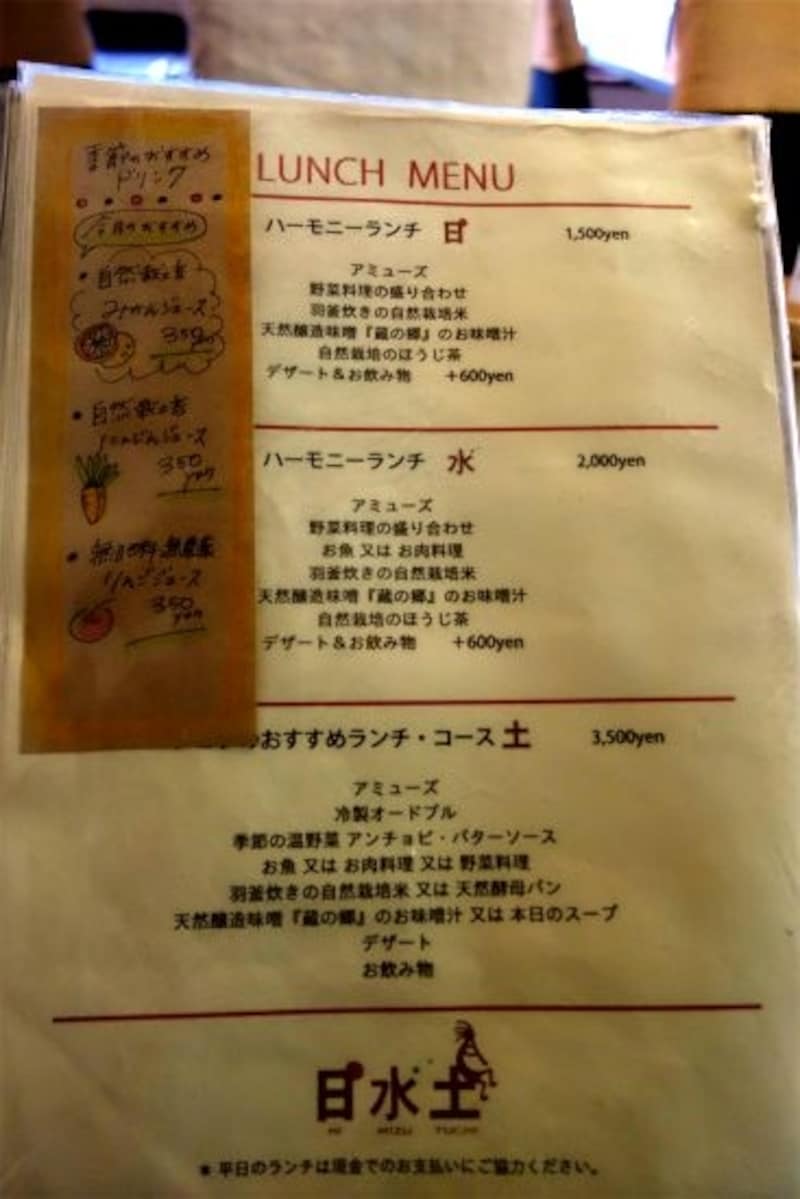 季節のおすすめ
ドリンク
今月のおすすめ
・自然栽培
みかんジュース
350yen
・自然栽培
にんじんジュース
350
yen
・無肥料・無農薬
りんごジュース
350
yen
LUNCH MENU
ハーモニーランチ 日 1,500yen
アミューズ
野菜料理の盛り合わせ
羽釜炊きの自然栽培米
天然醸造味噌『蔵の郷』のお味噌汁
自然栽培のほうじ茶
デザート&お飲み物 +600yen
ハーモニーランチ 水 2,000yen
アミューズ
野菜料理の盛り合わせ
お魚 又は お肉料理
羽釜炊きの自然栽培米
天然醸造味噌『蔵の郷』のお味噌汁
自然栽培のほうじ茶
デザート&お飲み物 +600yen
のおすすめランチ・コース 土 3,500yen
アミューズ
冷製オードブル
季節の温野菜 アンチョビ・バターソース
お魚 又は お肉料理 又は 野菜料理
羽釜炊きの自然栽培米 又は 天然酵母パン
天然醸造味噌『蔵の郷』のお味噌汁 又は 本日のスープ
デザート
お飲み物
日水土
HI MIZU TUCHI
* 平日のランチは現金でのお支払いにご協力ください。